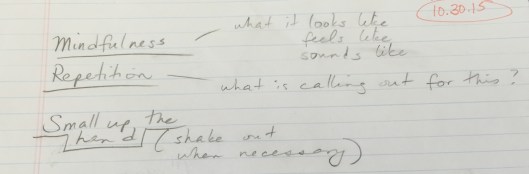 10.30.15
Mindfulness — what it looks like
feels like
sounds like
Repetition — what is calling out for this?
Small up the
hand (shake out
when necessary)